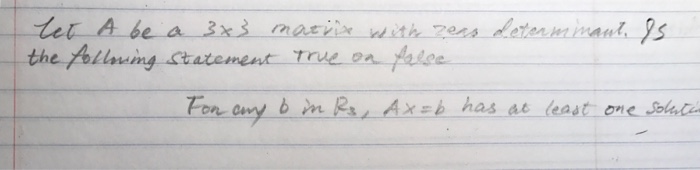 Let A be a 3x3 matrix with zero determinant. Is
the following statement True or false
For any b in R3, Ax=b has at least one Soluti